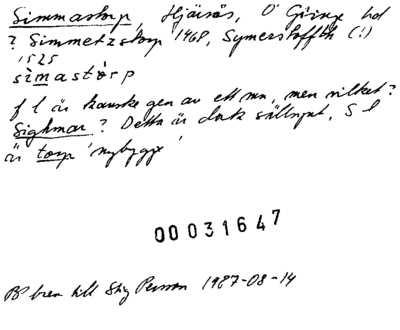 Simmastorp, Hjärsås, Ö Göinge hd
? Simmetzstorp 1468, Symerstoffth (!)
1525
simastòrp
f l är kanske gen av ett mn, men vilket?
Sighmar? Detta är dock sällsynt, S l
är torp 'nybygge'
00031647
BP brev till Stig Persson 1987-08-14